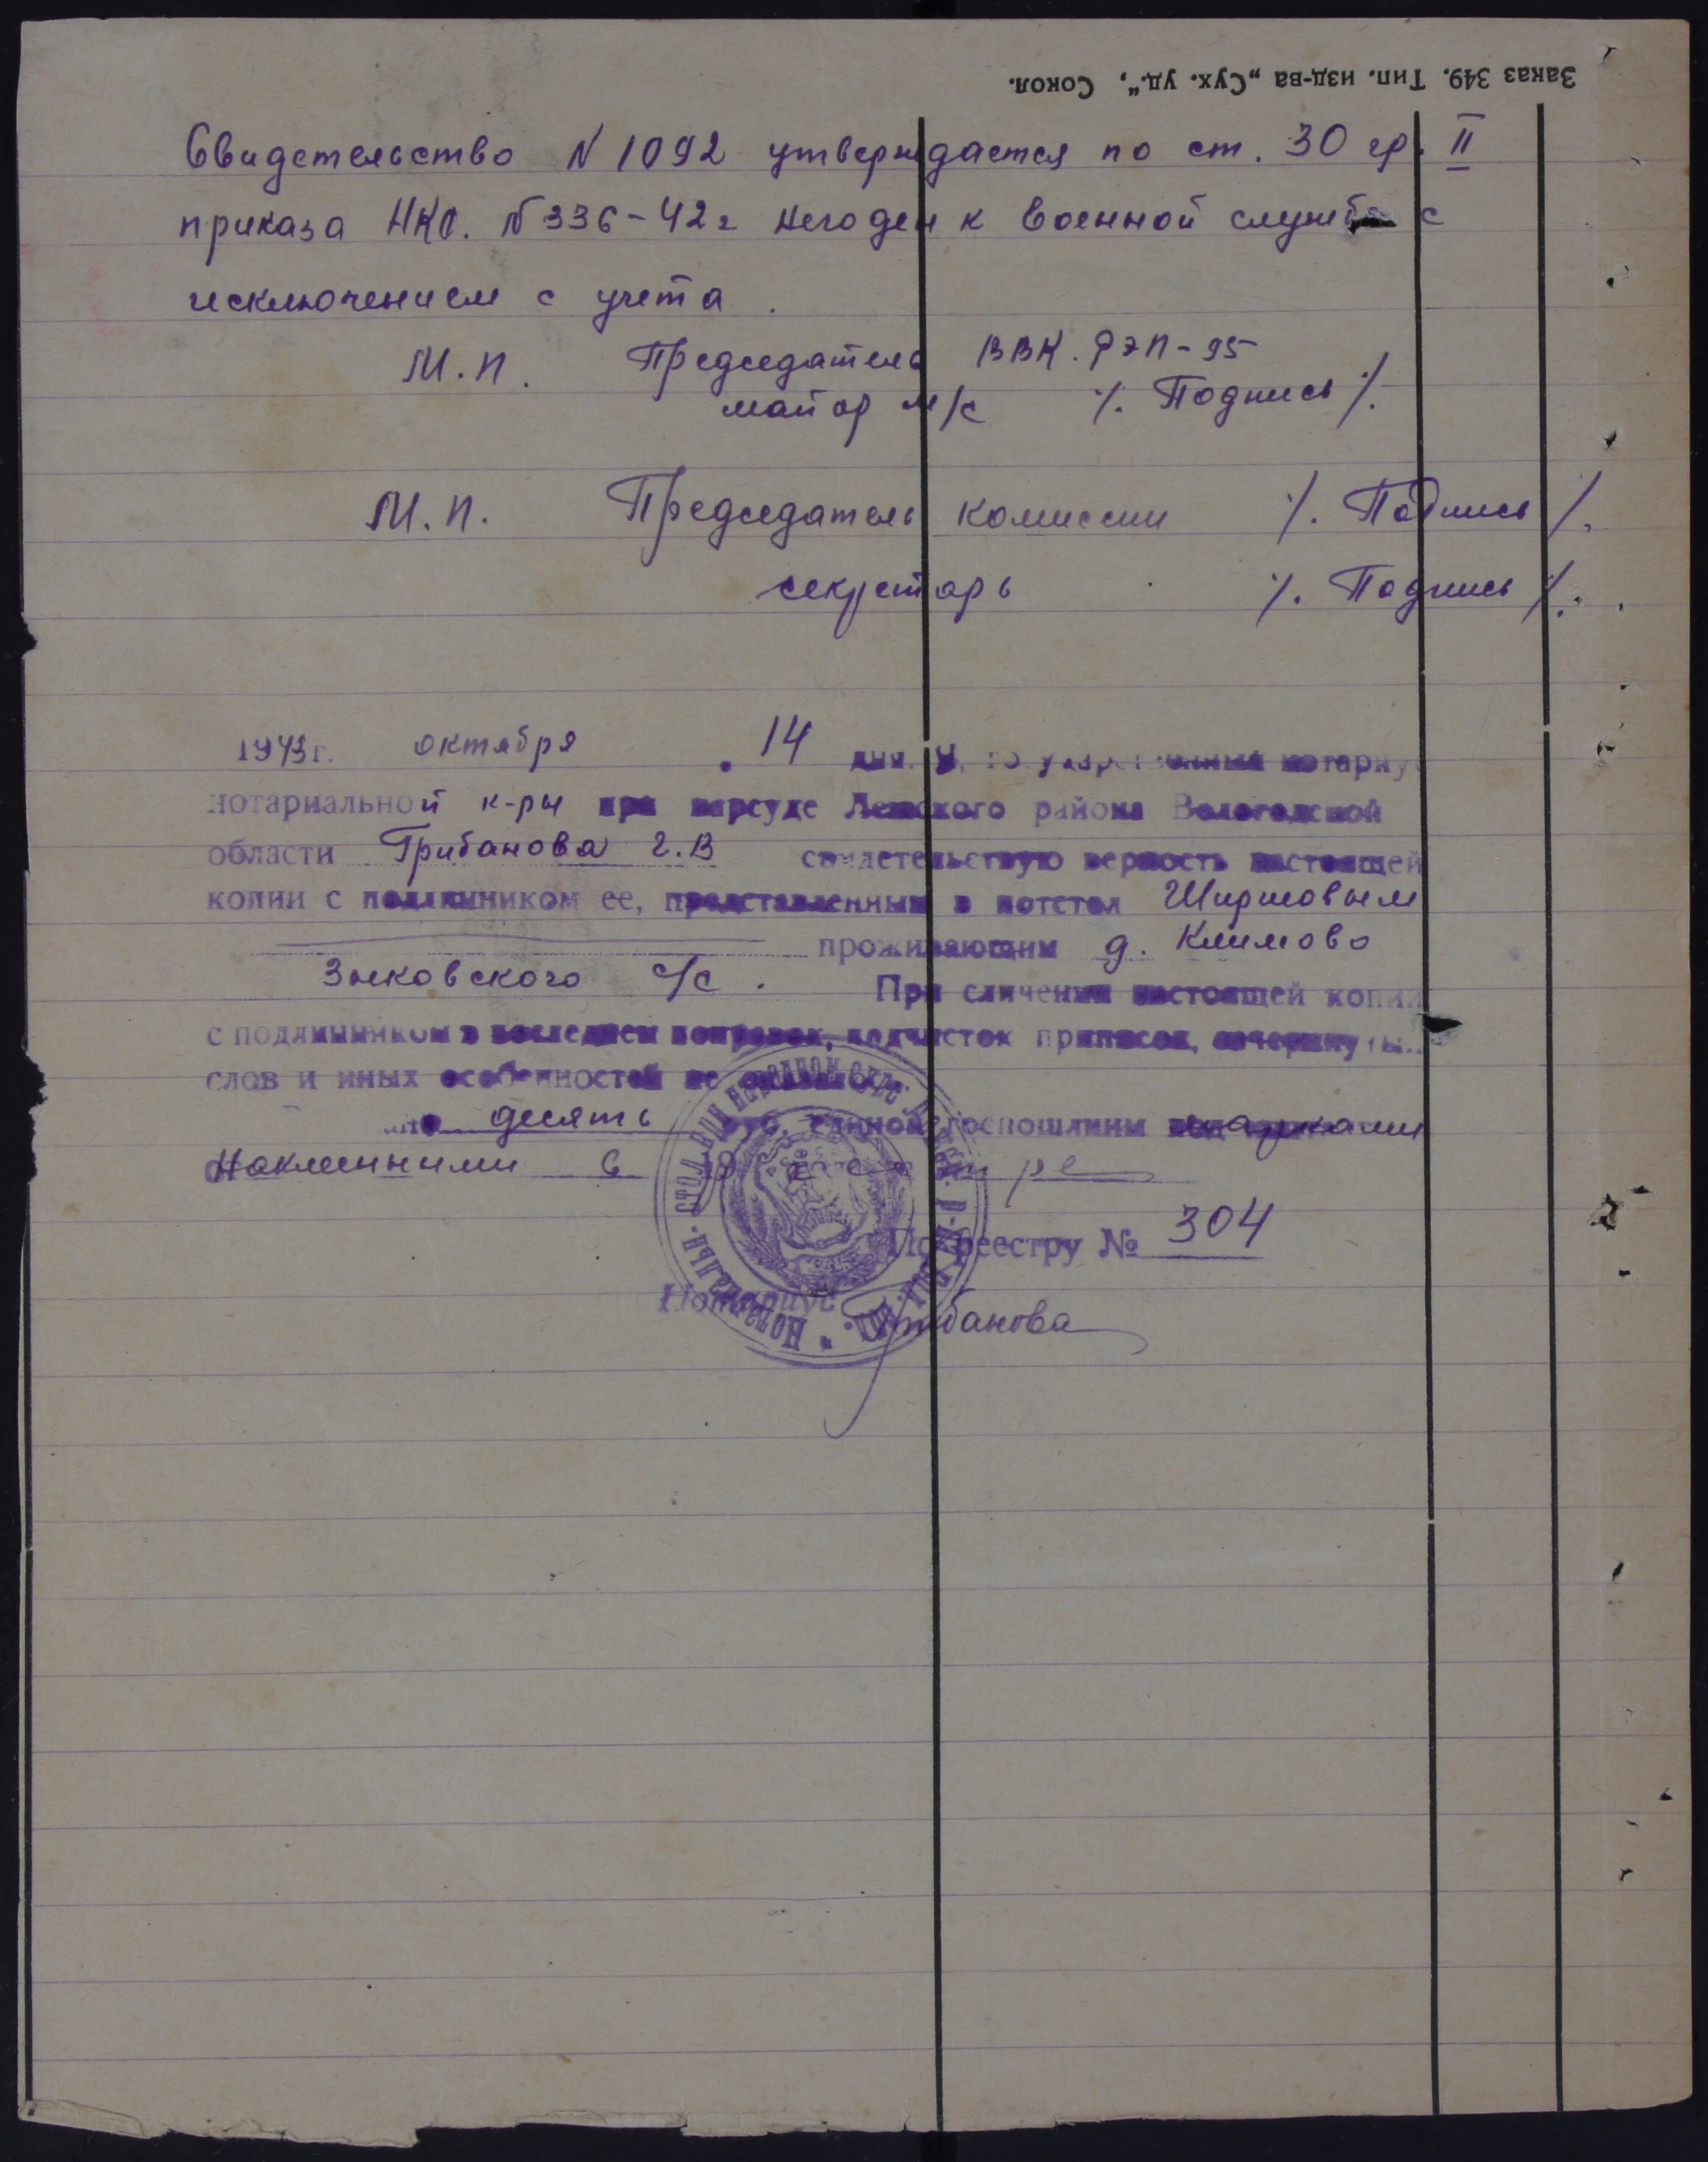 Заказ 349. Тип. изд-ва „Сух. уд.“, Сокол.
Свидетельство N 1092 утверждается по ст. 30 гр. II
приказа НКО. N 336-42г негоден к военной службе с
исключением с учета.
М.П. Председатель ВВК. РЭП-95
майор м/с /. Подпись /.
М.П. Председатель комиссии /. Подпись /.
секретарь /. Подпись /.
1943г. октября 14 дня. Я, государственный нотариус
нотариальной к-ры при нарсуде Лежского района Вологодской
области Грибанова Г.В свидетельствую верность настоящей
копии с подлинником ее, представленным в нотстол Ширшовым
проживающим д. Климово
Зыковского с/с. При сличении настоящей копии
с подлинником в последнем поправок, подчисток приписок, зачеркнутых
слов и иных особенностей не оказалось
десять руб. единой госпошлины марками
Наклеинными в
По реестру № 304
Нотариус Грибанова